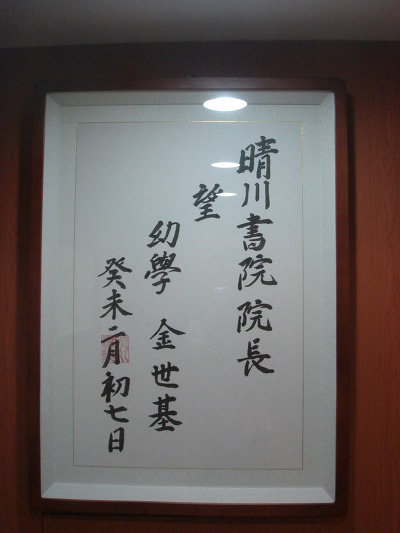 晴川書院院長
望
幼學 金世基
癸未二月初七日